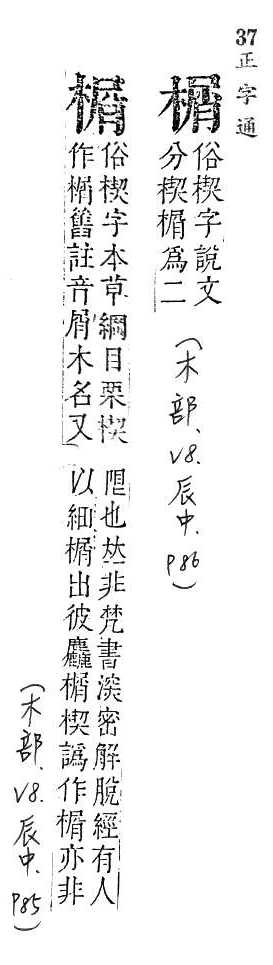 37正字通
榍
俗楔字說文
分楔榍爲二
(木部、V8.辰中、P86)
榍
俗楔字本草綱目栗楔
作榍舊註音屑木名又
限也𠀤非梵書深密解脫經有人
以細榍出彼麤榍楔譌作榍亦非
(木部、V8.辰中、P85)